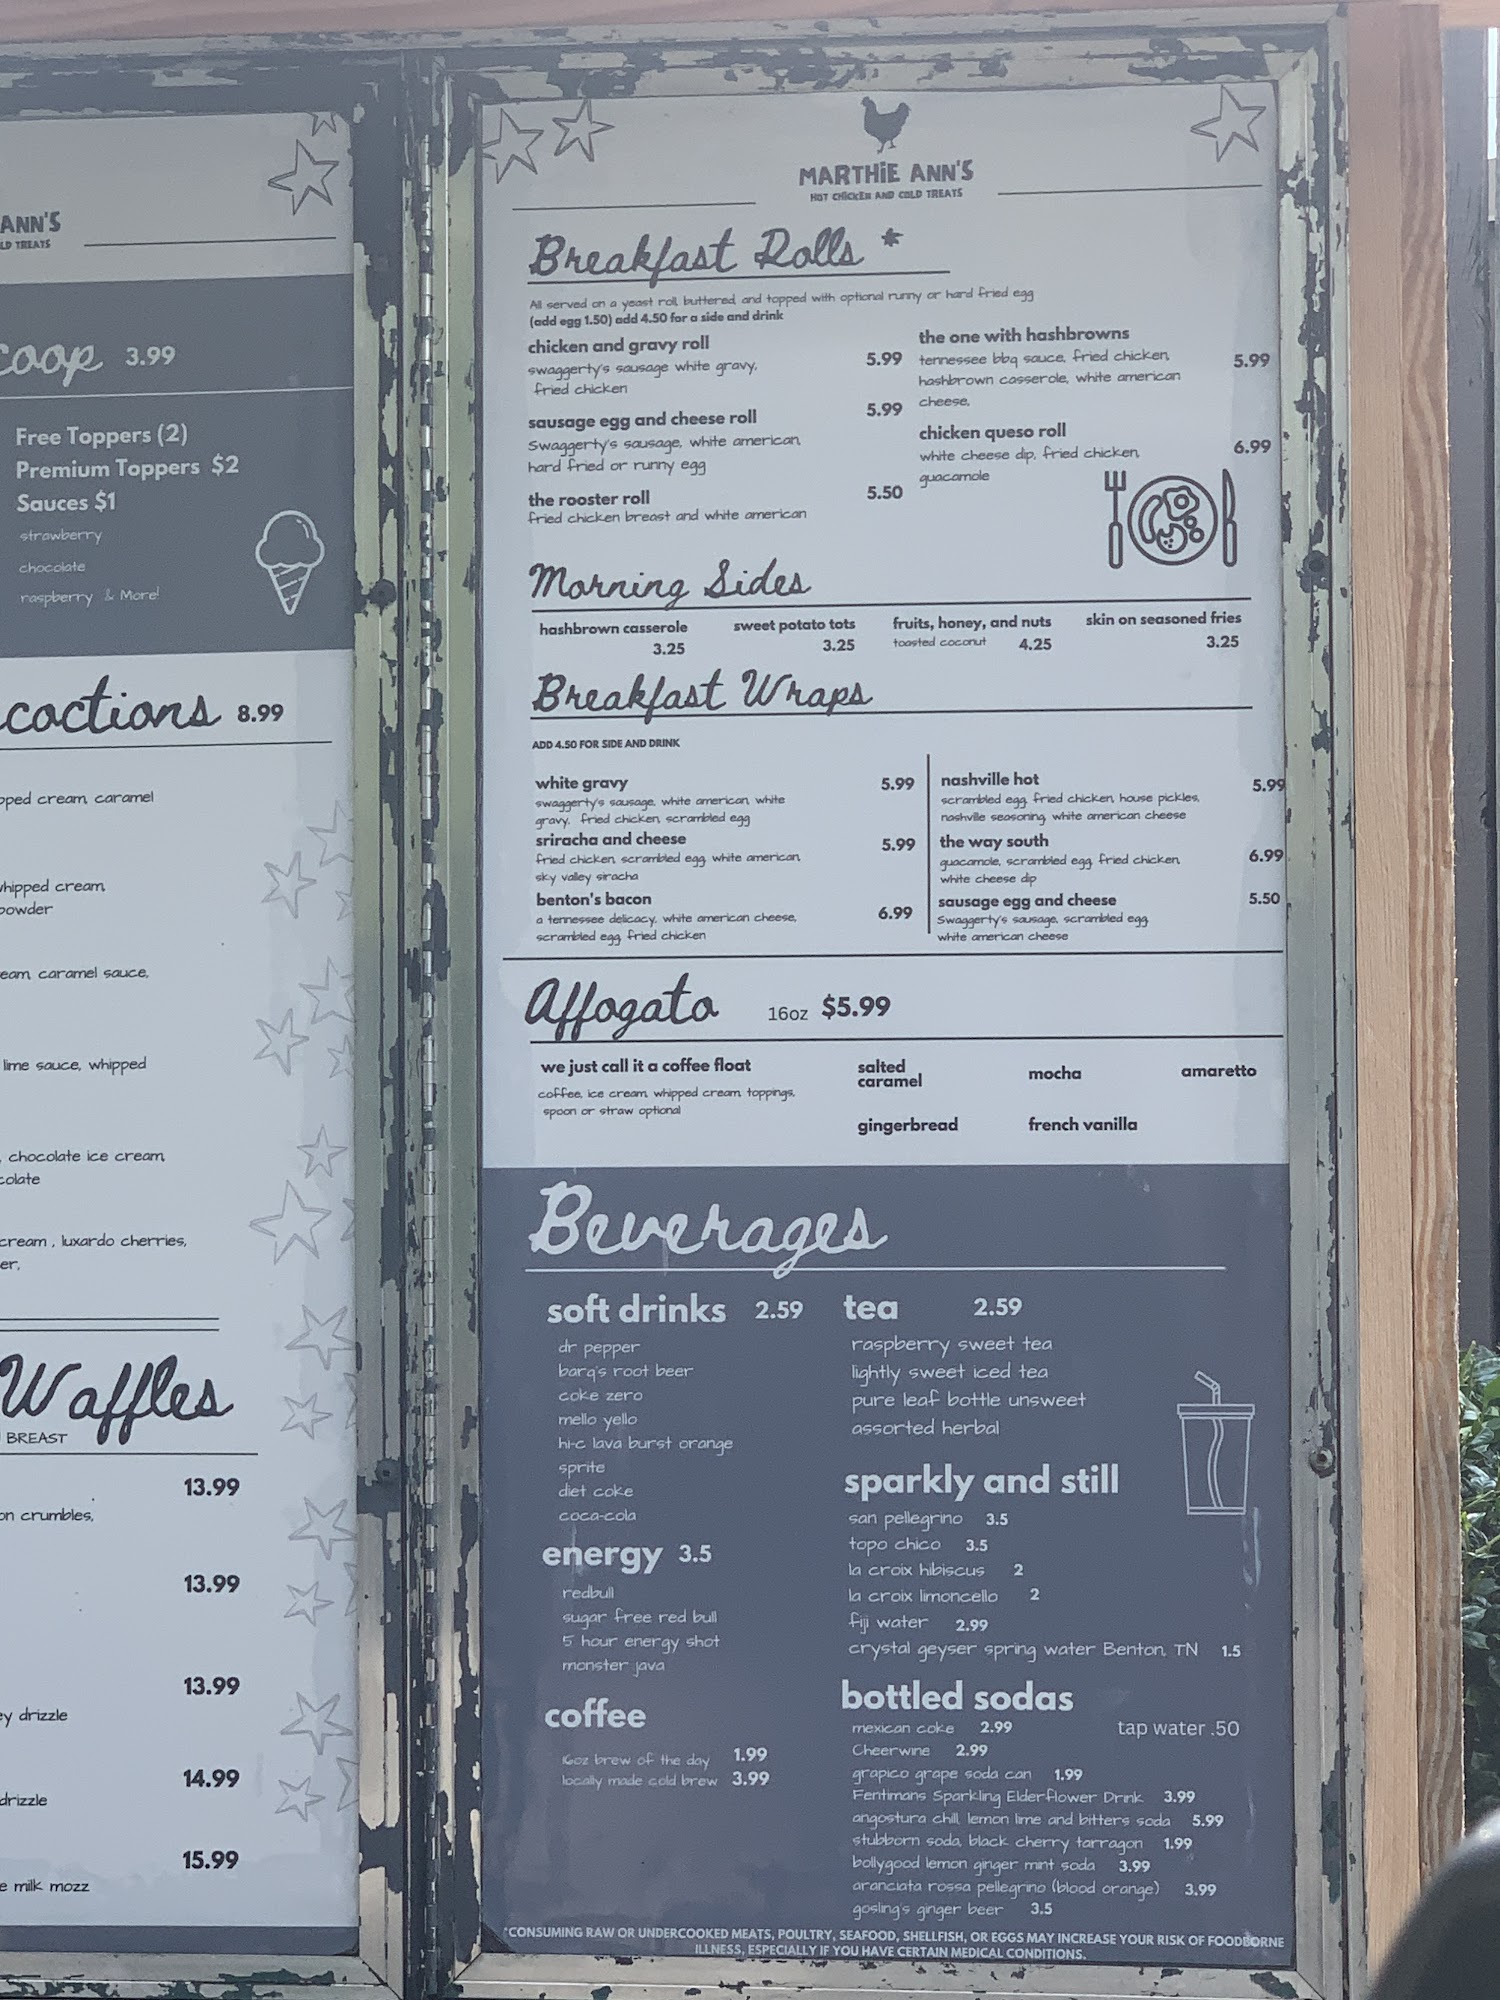 ANN'S
LD TREATS
coop 3.99
Free Toppers (2)
Premium Toppers $2
Sauces $1
strawberry
chocolate
raspberry & More!
coctions 8.99
pped cream, caramel
whipped cream,
powder
eam, caramel sauce,
lime sauce, whipped
, chocolate ice cream,
colate
cream , luxardo cherries,
er,
Waffles
BREAST
13.99
on crumbles,
13.99
13.99
ey drizzle
14.99
drizzle
15.99
e milk mozz
MARTHiE ANN'S
HOT CHiCKEN AND COLD TREATS
Breakfast Rolls *
All served on a yeast roll, buttered, and topped with optional runny or hard fried egg
(add egg 1.50) add 4.50 for a side and drink
chicken and gravy roll
swaggerty's sausage white gravy, 5.99
fried chicken
sausage egg and cheese roll 5.99
Swaggerty's sausage, white american,
hard fried or runny egg
the rooster roll 5.50
fried chicken breast and white american
the one with hashbrowns
tennessee bbq sauce, fried chicken, 5.99
hashbrown casserole, white american
cheese,
chicken queso roll
white cheese dip, fried chicken, 6.99
guacamole
Morning Sides
hashbrown casserole
3.25
sweet potato tots
3.25
fruits, honey, and nuts
toasted coconut 4.25
skin on seasoned fries
3.25
Breakfast Wraps
ADD 4.50 FOR SIDE AND DRINK
white gravy 5.99
swaggerty's sausage, white american, white
gravy, fried chicken, scrambled egg
sriracha and cheese 5.99
fried chicken, scrambled egg, white american,
sky valley siracha
benton's bacon
a tennessee delicacy, white american cheese, 6.99
scrambled egg, fried chicken
nashville hot 5.99
scrambled egg, fried chicken, house pickles,
nashville seasoning, white american cheese
the way south
guacamole, scrambled egg, fried chicken, 6.99
white cheese dip
sausage egg and cheese 5.50
Swaggerty's sausage, scrambled egg,
white american cheese
Affogato 16oz $5.99
we just call it a coffee float
coffee, ice cream, whipped cream, toppings,
spoon or straw optional
salted
caramel
mocha
amaretto
gingerbread
french vanilla
Beverages
soft drinks 2.59
dr pepper
barq's root beer
coke zero
mello yello
hi-c lava burst orange
sprite
diet coke
coca-cola
energy 3.5
redbull
sugar free red bull
5 hour energy shot
monster java
coffee
16oz brew of the day 1.99
locally made cold brew 3.99
tea 2.59
raspberry sweet tea
lightly sweet iced tea
pure leaf bottle unsweet
assorted herbal
sparkly and still
san pellegrino 3.5
topo chico 3.5
la croix hibiscus 2
la croix limoncello 2
fiji water 2.99
crystal geyser spring water Benton, TN 1.5
bottled sodas
mexican coke 2.99
tap water .50
Cheerwine 2.99
grapico grape soda can 1.99
Fentimans Sparkling Elderflower Drink 3.99
angostura chill, lemon lime and bitters soda 5.99
stubborn soda, black cherry tarragon 1.99
bollygood lemon ginger mint soda 3.99
aranciata rossa pellegrino (blood orange) 3.99
gosling's ginger beer 3.5
*CONSUMING RAW OR UNDERCOOKED MEATS, POULTRY, SEAFOOD, SHELLFISH, OR EGGS MAY INCREASE YOUR RISK OF FOODBORNE
ILLNESS, ESPECIALLY IF YOU HAVE CERTAIN MEDICAL CONDITIONS.